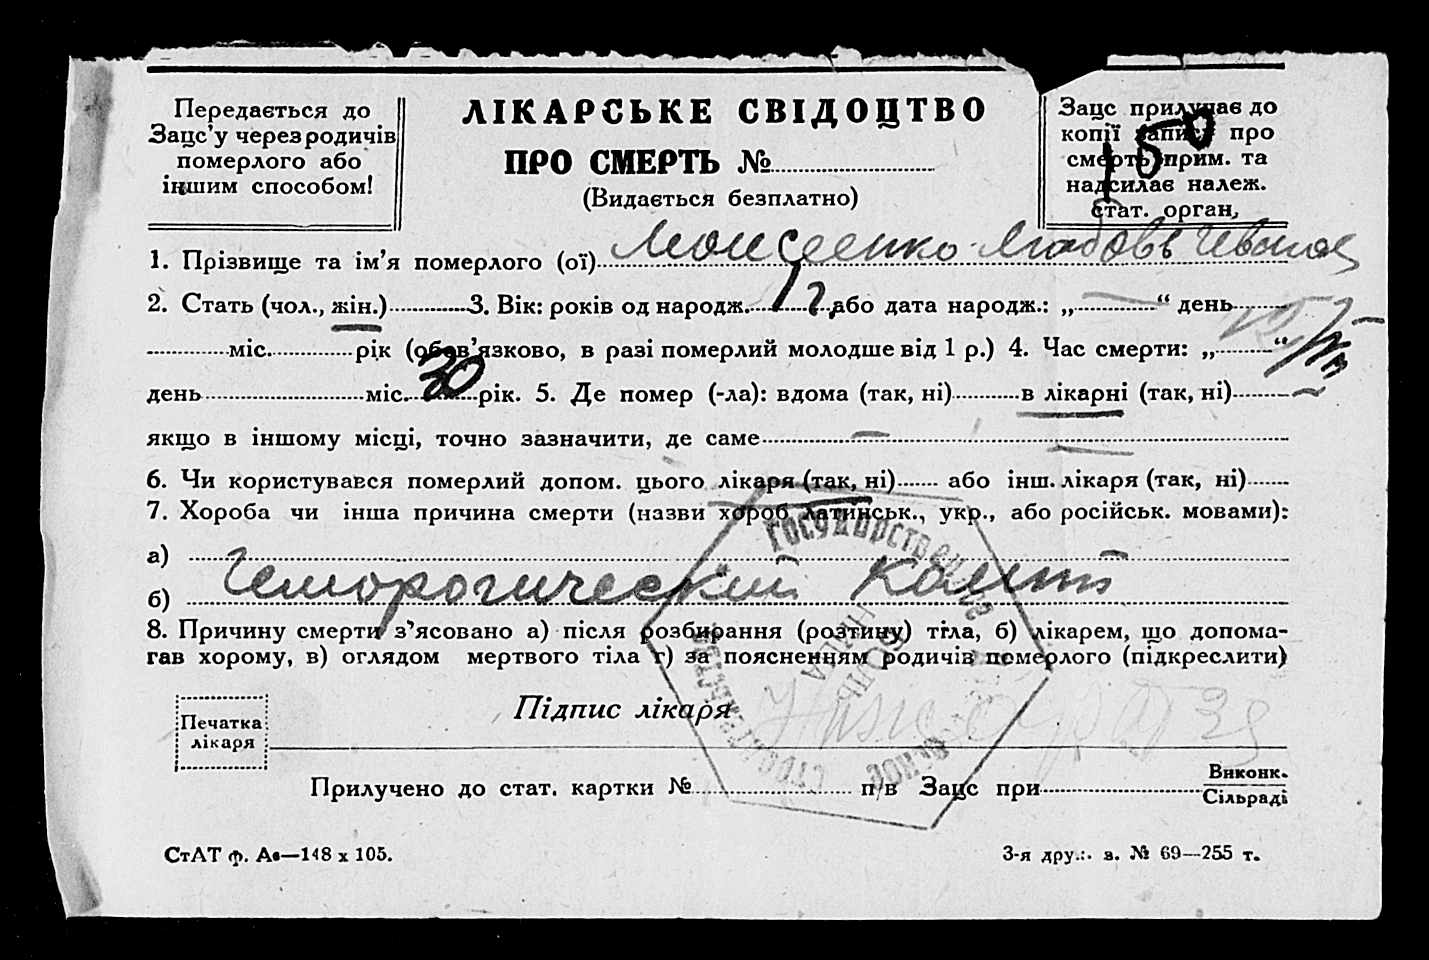 Передається до
Зацс'у через родичів
померлого або
іншим способом!
ЛІКАРСЬКЕ СВІДОЦТВО
ПРО СМЕРТЬ №
(Видається безплатно)
Зацс прилучає до
копії запису про
смерть прим. та
надсилає належ.
стат. орган,
150
1. Прізвище та ім'я померлого (ої) Моисеенко Любовь
2. Стать (чол., жін.) 3. Вік: років од народж. або дата народж.: „ “ день
міс. рік (обов'язково, в разі померлий молодше від 1 р.) 4. Час смерти: „ “
день міс. 30 рік. 5. Де помер (-ла): вдома (так, ні) в лікарні (так, ні)
якщо в іншому місці, точно зазначити, де саме
6. Чи користувався померлий допом. цього лікаря (так, ні) або інш. лікаря (так, ні)
7. Хороба чи інша причина смерти (назви хороб латинськ., укр., або російськ. мовами):
а)
б) Геморогический колит
8. Причину смерти з'ясовано а) після розбирання (розтину) тіла, б) лікарем, що допома-
гав хорому, в) оглядом мертвого тіла г) за поясненням родичів померлого (підкреслити)
Підпис лікаря
Печатка
лікаря
Прилучено до стат. картки № п/в Зацс при Виконк.
Сільраді
СтАТ ф. Ав—148 х 105.
3-я дру.:. з. № 69—255 т.